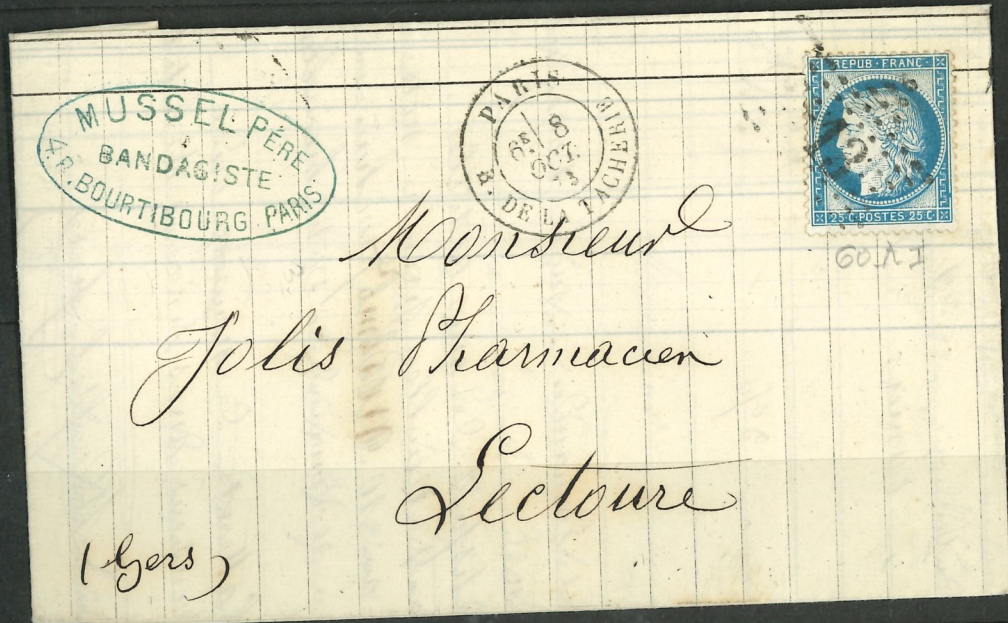 MUSSEL PÈRE
BANDAGISTE
4.R.BOURTIBOURG.PARIS
PARIS
8
OCT
73
R. DE LA TACHERIE
REPUB·FRANC·
25·C·POSTES·25·C
60A1
Monsieur
Jolis Pharmacien
Lectoure
(Gers)